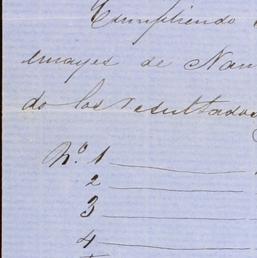 Cumpliendo
ensayes de Nan
do los resultados
N.º 1
2
3
4